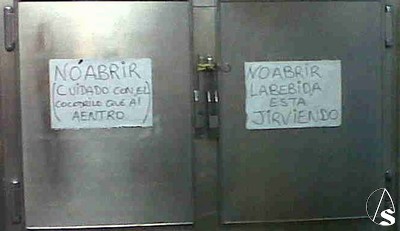 NO ABRIR
(CUIDADO CON EL
COCODRILO QUE AI
AENTRO)
NO ABRIR
LA BEBIDA
ESTA
JIRVIENDO